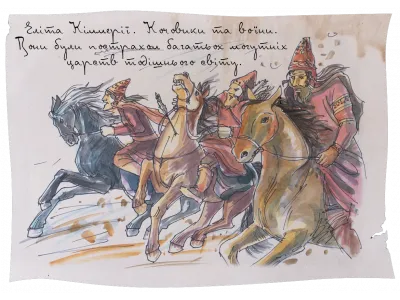 Еліта Кіммерії. Кочовики та воїни.
Вони були пострахом багатьох могутніх
царств тодішнього світу.